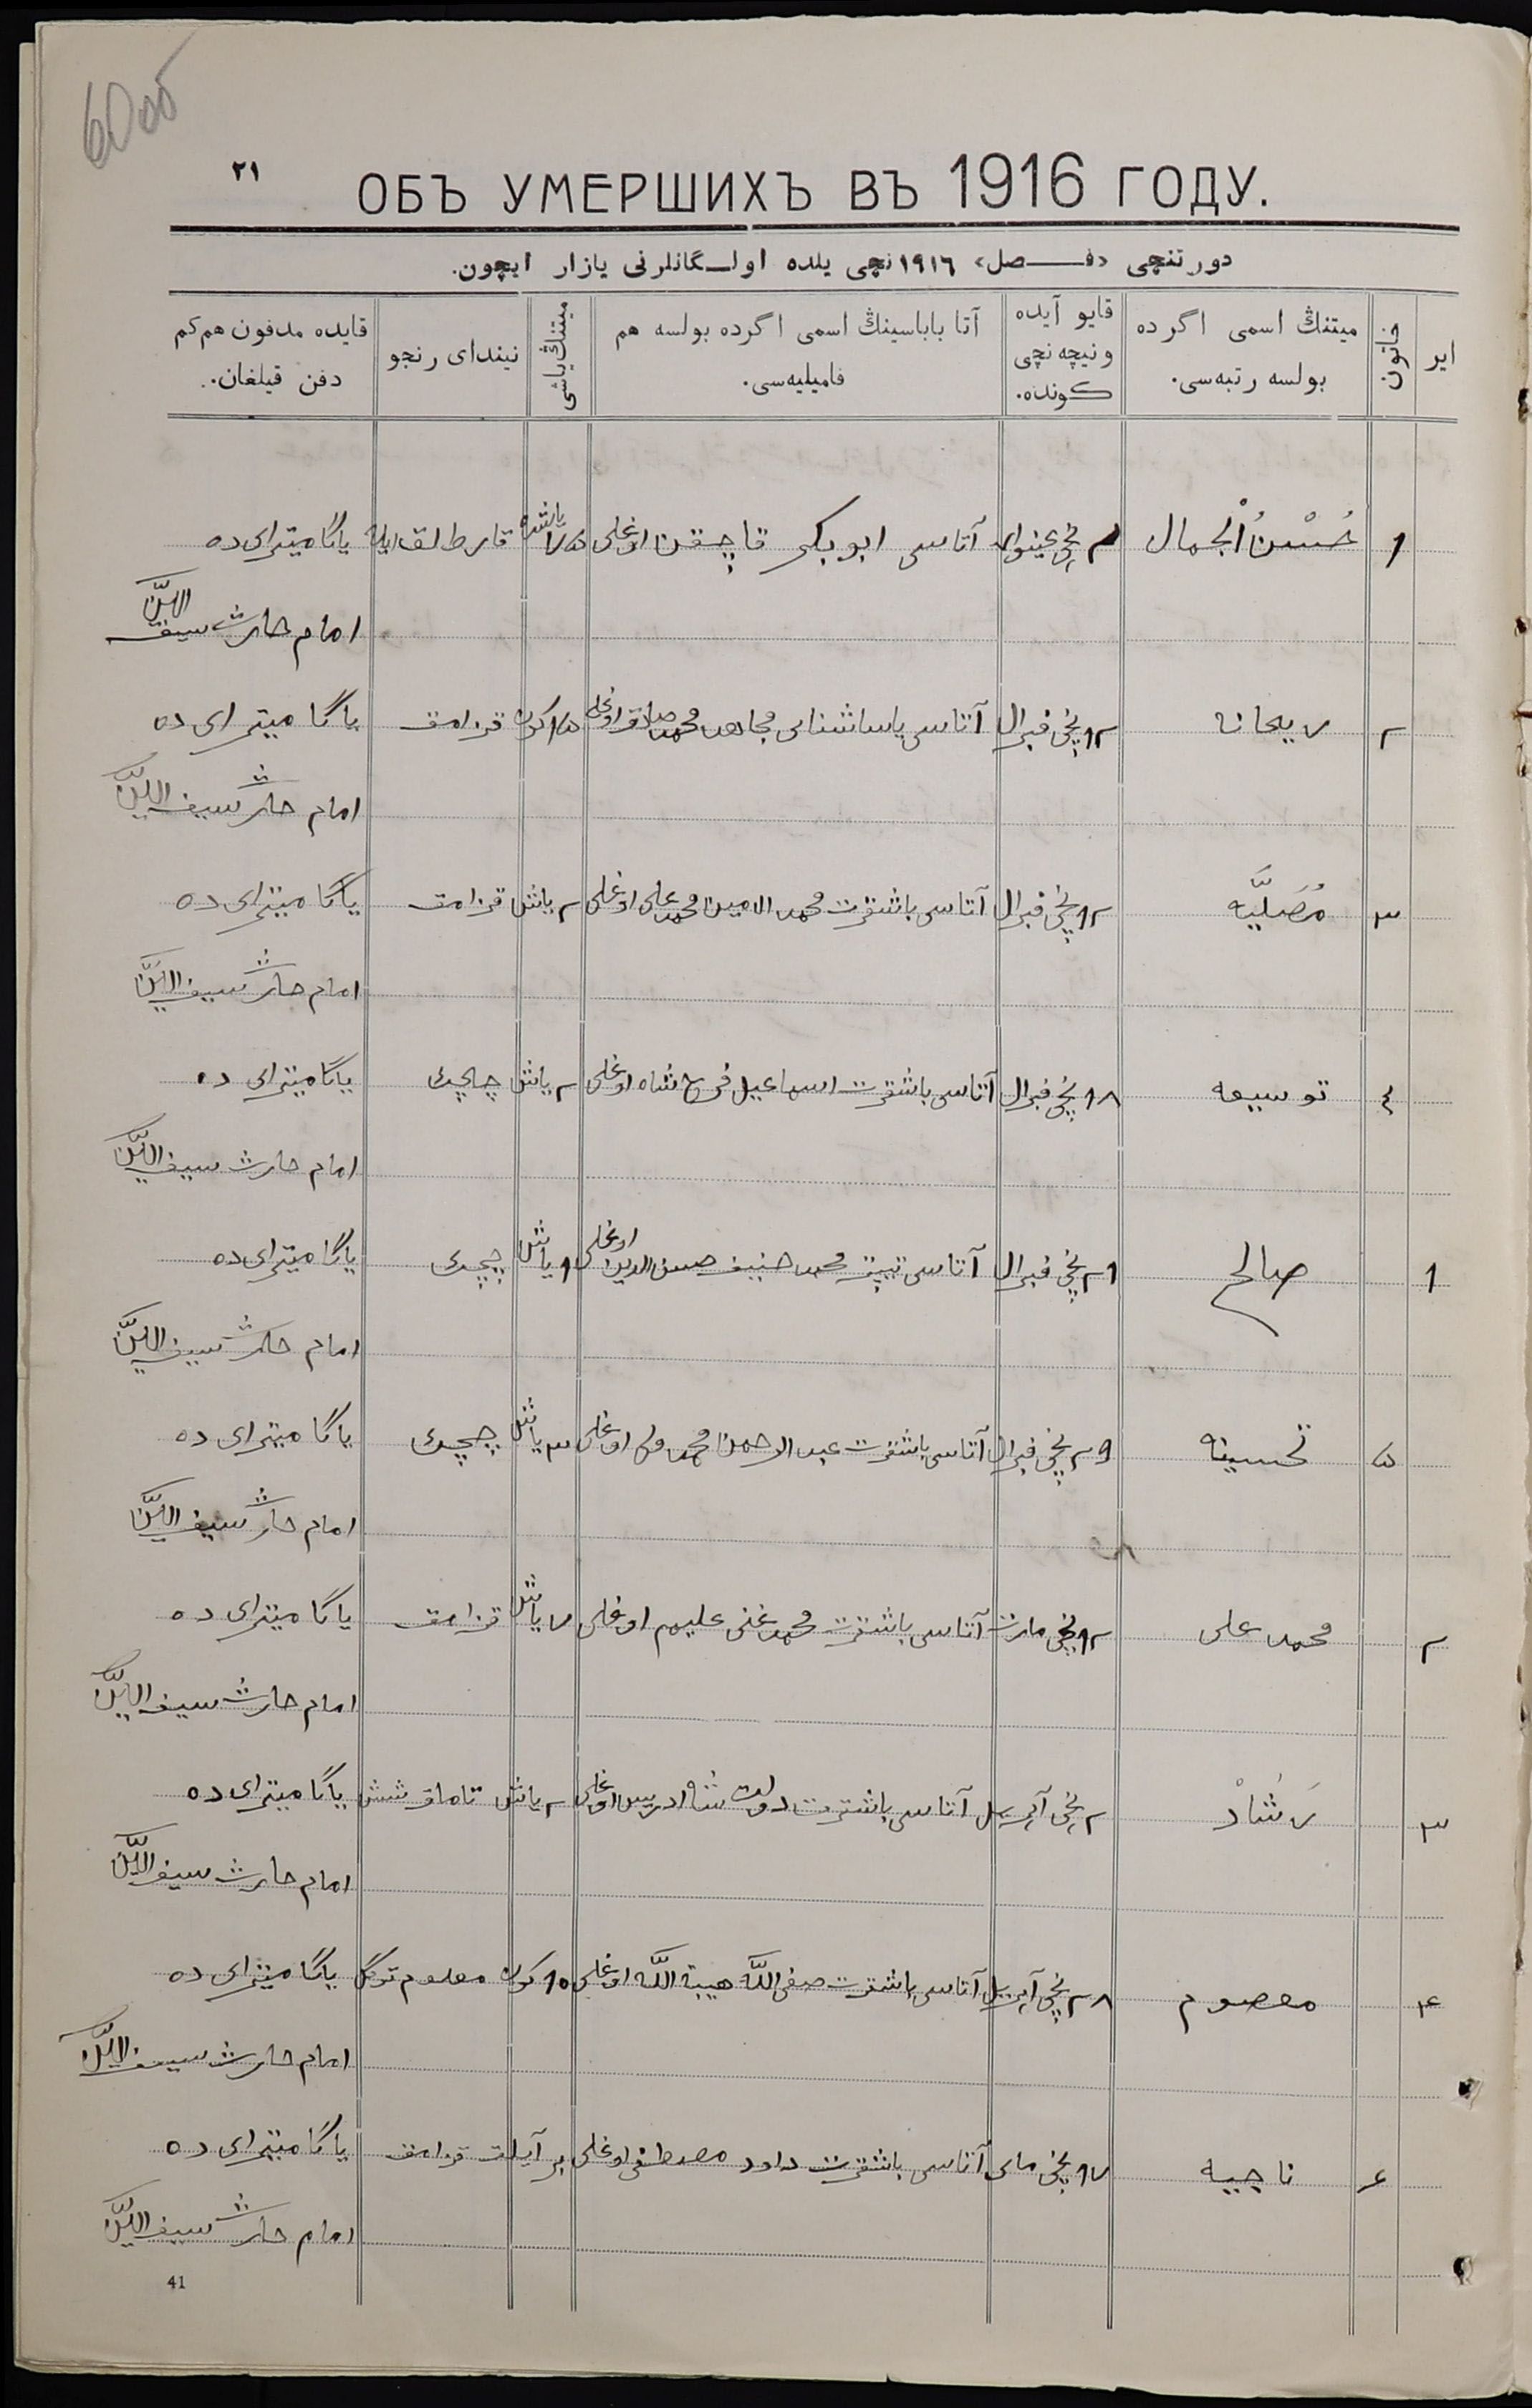 60об
٢١
ОБЪ УМЕРШИХЪ ВЪ 1916 ГОДУ.
دورتنچی «فـــصل» ١٩١٦ نچی یلده اولـگانلرنی یازار ایچون.
ایر
خاتون
میتنڭ اسمی اگرده بولسه رتبه‌سی.
قایو آیده ونیچه نچی کونده.
آتا باباسینڭ اسمی اگرده بولسه هم فامیلیه‌سی.
میتنڭ یاشی
نیندای رنجو
قایده مدفون هم کم دفن قیلغان.
١ حُسْنُ الْجمال آتاسی ابوبکر اوغلی ٧٥ یاشده قارطلق ایله یاڭا میترای ده
امام حارث سیف الدین
٢ ریحانه ١٢ نچی فبرال آتاسی مجاهد محمدصادق اوغلی ١٥ کون قزامق یاڭا میترای ده
امام حارث سیف الدین
٣ مُصَلِّیَه ١٢ نچی فبرال آتاسی باشقرت محمد الامین محمدعلی اوغلی ٢ یاش قزامق یاڭا میترای ده
امام حارث سیف الدین
٤ توسیعه ١٨ نچی فبرال آتاسی باشقرت اسماعیل فرح شاه اوغلی ٢ یاش چاچک یاڭا میترای ده
امام حارث سیف الدین
١ صالح ٢١ نچی فبرال آتاسی تیپتر محمد حنیف حسن الدین اوغلی ١ یاش چچک یاڭا میترای ده
امام حارث سیف الدین
٥ تحسینه ٢٩ نچی فبرال آتاسی باشقرت عبد الرحمن محمد ولی اوغلی ٣ یاش چچک یاڭا میترای ده
امام حارث سیف الدین
٢ محمد علی ١٢ نچی مارت آتاسی باشقرت محمد غنی علیم اوغلی ٧ یاش قزامق یاڭا میترای ده
امام حارث سیف الدین
٣ رَشَادْ ٢ نچی آپریل آتاسی باشقرت دولت شاه ادریس اوغلی ٢ یاش تاماق شش یاڭا میترای ده
امام حارث سیف الدین
٤ معصوم ٢٨ نچی آپریل آتاسی باشقرت صفی الله هیبة الله اوغلی ١٥ کون معلوم توگل یاڭا میترای ده
امام حارث سیف الدین
٦ ناجیه ١٧ نچی مای آتاسی باشقرت داود مصطفی اوغلی بر آیلق قزامق یاڭا میترای ده
امام حارث سیف الدین
41